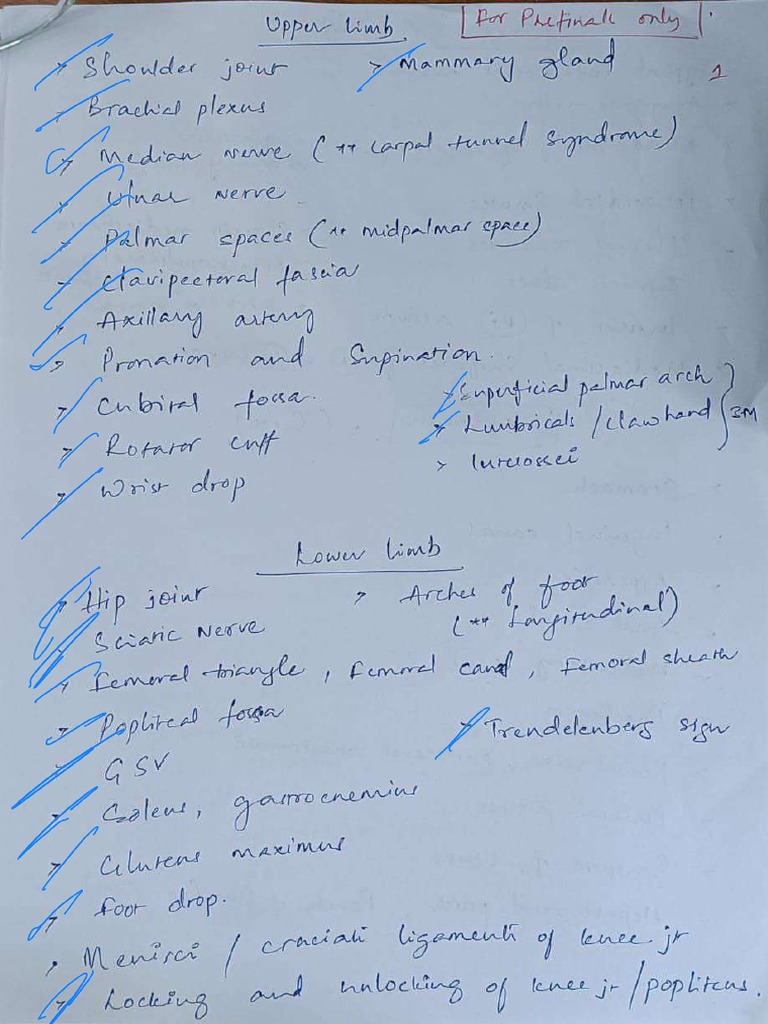 Upper limb
For Prefinals only
1
> Shoulder joint > Mammary gland
Brachial plexus
> Median nerve (** Carpal tunnel syndrome)
> Ulnar nerve
> Palmar spaces (** midpalmar space)
> Clavipectoral fascia
> Axillary artery
> Pronation and Supination.
> Cubital fossa. > Superficial palmar arch
> Rotator cuff > Lumbricals / Claw hand } 3M
> Wrist drop > Interossei
Lower limb
> Hip joint > Arches of foot
> Sciatic Nerve (** Longitudinal)
> Femoral triangle, femoral canal, femoral sheath
> Popliteal fossa > Trendelenberg sign
> GSV
> Soleus, gastrocnemius
> Gluteus maximus
> foot drop.
> Menisci / cruciate ligaments of knee jt
> Locking and unlocking of knee jt / popliteus.